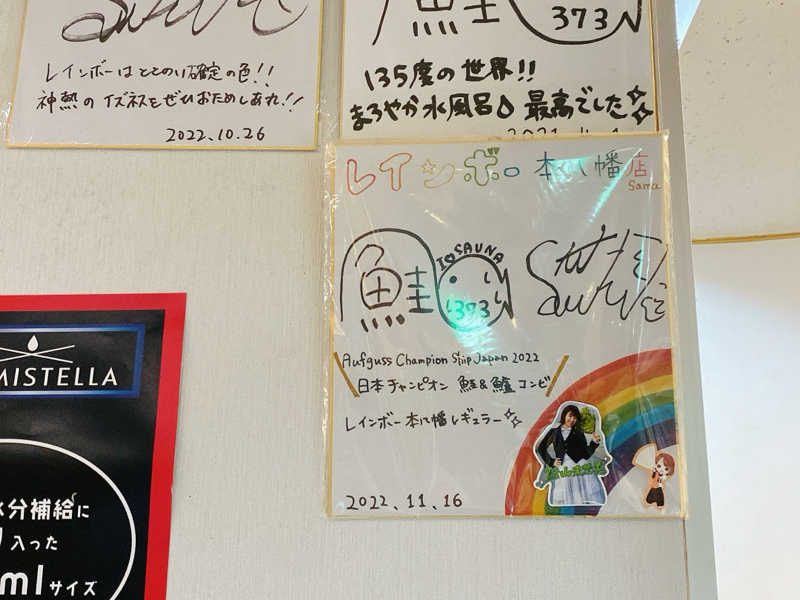 レインボーはととのい確定の色!!
神熱のイズネスをぜひおためしあれ!!
2022.10.26
鮭
373
135度の世界!!
まろやか水風呂 最高でした
レインボー 本八幡店
Sama
鮭
I♡SAUNA
373
Aufguss Champion Ship Japan 2022
日本チャンピオン 鮭&鱸コンビ
レインボー本八幡レギュラー
2022.11.16
MISTELLA
水分補給に
入った
mlサイズ